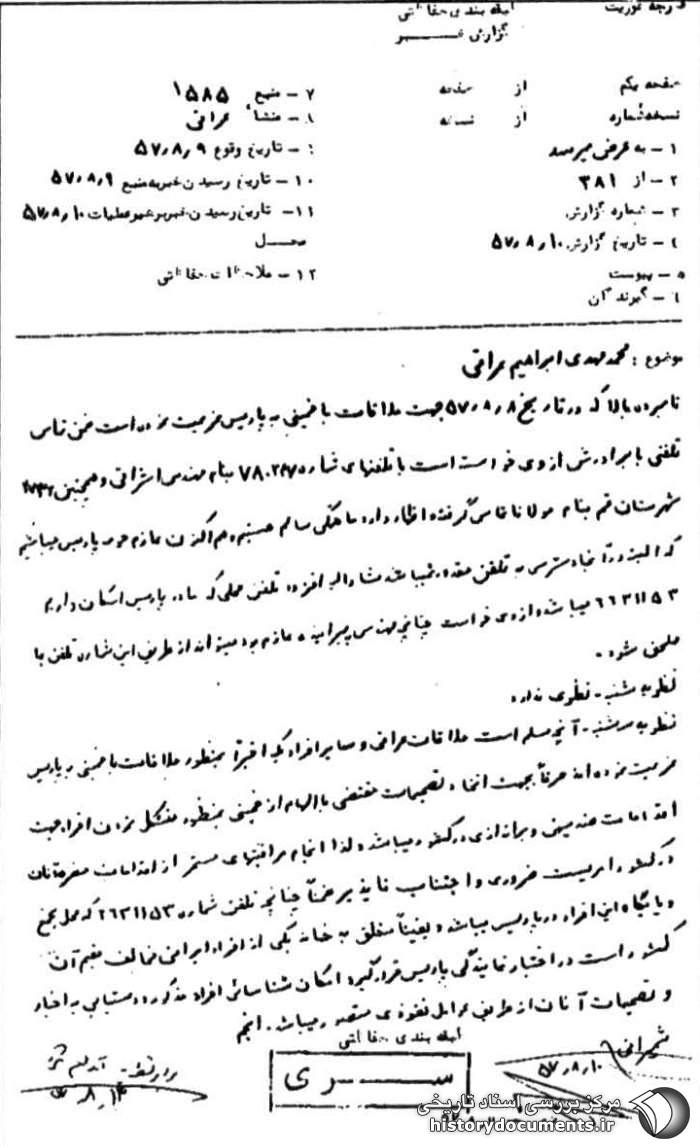 درجه فوریت
طبقه بندی حفاظتی
گزارش خبر
صفحه یکم از صفحه
نسخه شماره از نسخه
۱ - به عرض میرسد
۲ - از ۳۸۱
۳ - شماره گزارش
۴ - تاریخ گزارش ۵۷٫۸٫۱۰
۵ - پیوست
۶ - گیرندگان
۷ - منبع ۱۵۸۵
۸ - منشأ عراقی
۹ - تاریخ وقوع ۵۷٫۸٫۹
۱۰ - تاریخ رسیدن خبر به منبع ۵۷٫۸٫۹
۱۱ - تاریخ رسیدن خبر به رهبر عملیات ۵۷٫۸٫۱۰
محل
۱۲ - ملاحظات حفاظتی
موضوع : محمدمهدی ابراهیم عراقی
نامبرده بالا که در تاریخ ۵۷٫۸٫۸ جهت ملاقات با خمینی به پاریس عزیمت نموده است ضمن تماس
تلفنی با برادرش از وی خواسته است با تلفنهای شماره ۷۸۰۲۴۷ بنام مهندس اشراقی و همچنین
شهرستان قم بنام مولانا تماس گرفته و اظهار دارد ما همگی سالم هستیم و هم اکنون عازم حومه پاریس میباشیم
که البته در آنجا دسترسی به تلفن مقدور نمیباشد مشارالیه افزود تلفن محلی که ما در پاریس اسکان داریم
۶۶۳۱۱۵۳ میباشد و از وی خواست چنانچه مهندس عازم بود میتواند از طریق این شماره تلفن با
ملحق شود -
نظریه شنبه - نظری ندارد
نظریه سه‌شنبه - آنچه مسلم است ملاقات عراقی و سایر افرادیکه اخیراً بمنظور ملاقات با خمینی به پاریس
عزیمت نموده‌اند صرفاً بجهت اتخاذ تصمیمات مقتضی با الهام از خمینی بمنظور متشکل نمودن افراد جهت
اقدامات ضد میهنی و براندازی در کشور میباشد و لذا انجام مراقبتهای مستمر از اقدامات مغرضانه‌شان
در کشور امریست ضروری و اجتناب ناپذیر ضمناً چنانچه تلفن شماره ۶۶۳۱۱۵۳ که محل تجمع
و پایگاه این افراد در پاریس میباشد و یقیناً متعلق به خانه یکی از افراد ایرانی مخالف مقیم آن
کشور است در اختیار نمایندگی پاریس قرار گیرد امکان شناسائی افراد مذکور و دستیابی به اخبار
و تصمیمات آنان از طریق عوامل نفوذی متصور میباشد.
طبقه بندی حفاظتی
سری
شمیرانی
۵۷٫۸٫۱۰
مرکز بررسی اسناد تاریخی
historydocuments.ir